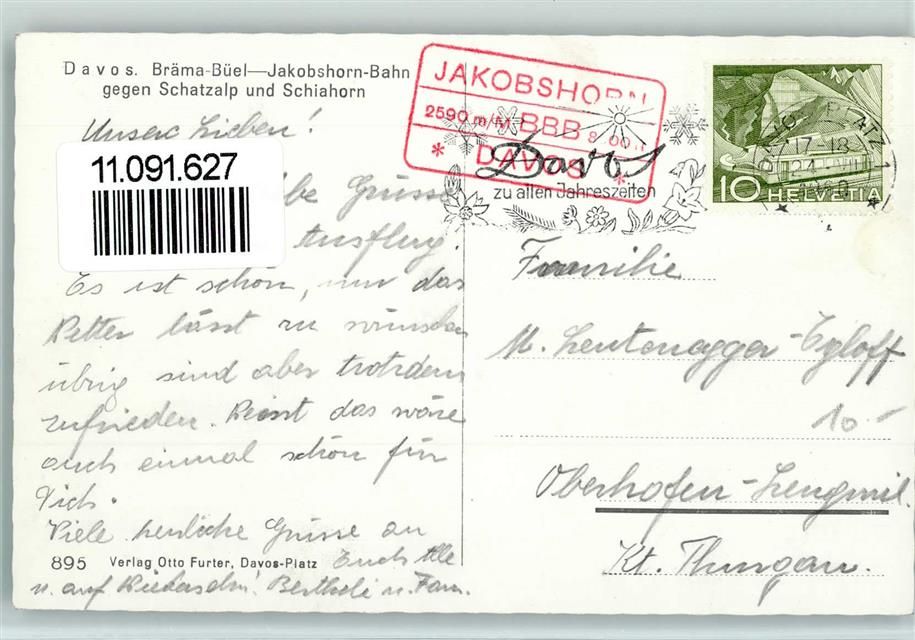 Davos. Bräma-Büel—Jakobshorn-Bahn
gegen Schatzalp und Schiahorn
Unsere Lieben!
11.091.627
Grüsse
Ausflug.
Es ist schön, nur das
Wetter lässt zu wünschen
übrig sind aber trotzdem
zufrieden. das wäre
auch einmal schön für
Dich.
Viele herzliche Grüsse an
895 Verlag Otto Furter, Davos-Platz Euch Alle
u. auf Wiedersehn! Bertheli u. Fam.
JAKOBSHORN
2590 m/M BBB
* DAVOS *
Davos
zu allen Jahreszeiten
DAVOS PLATZ 1
17-18
10 HELVETIA
Familie
M. Leutenegger-Egloff
10.-
Oberhofen-Lengwil.
Kt. Thurgau.